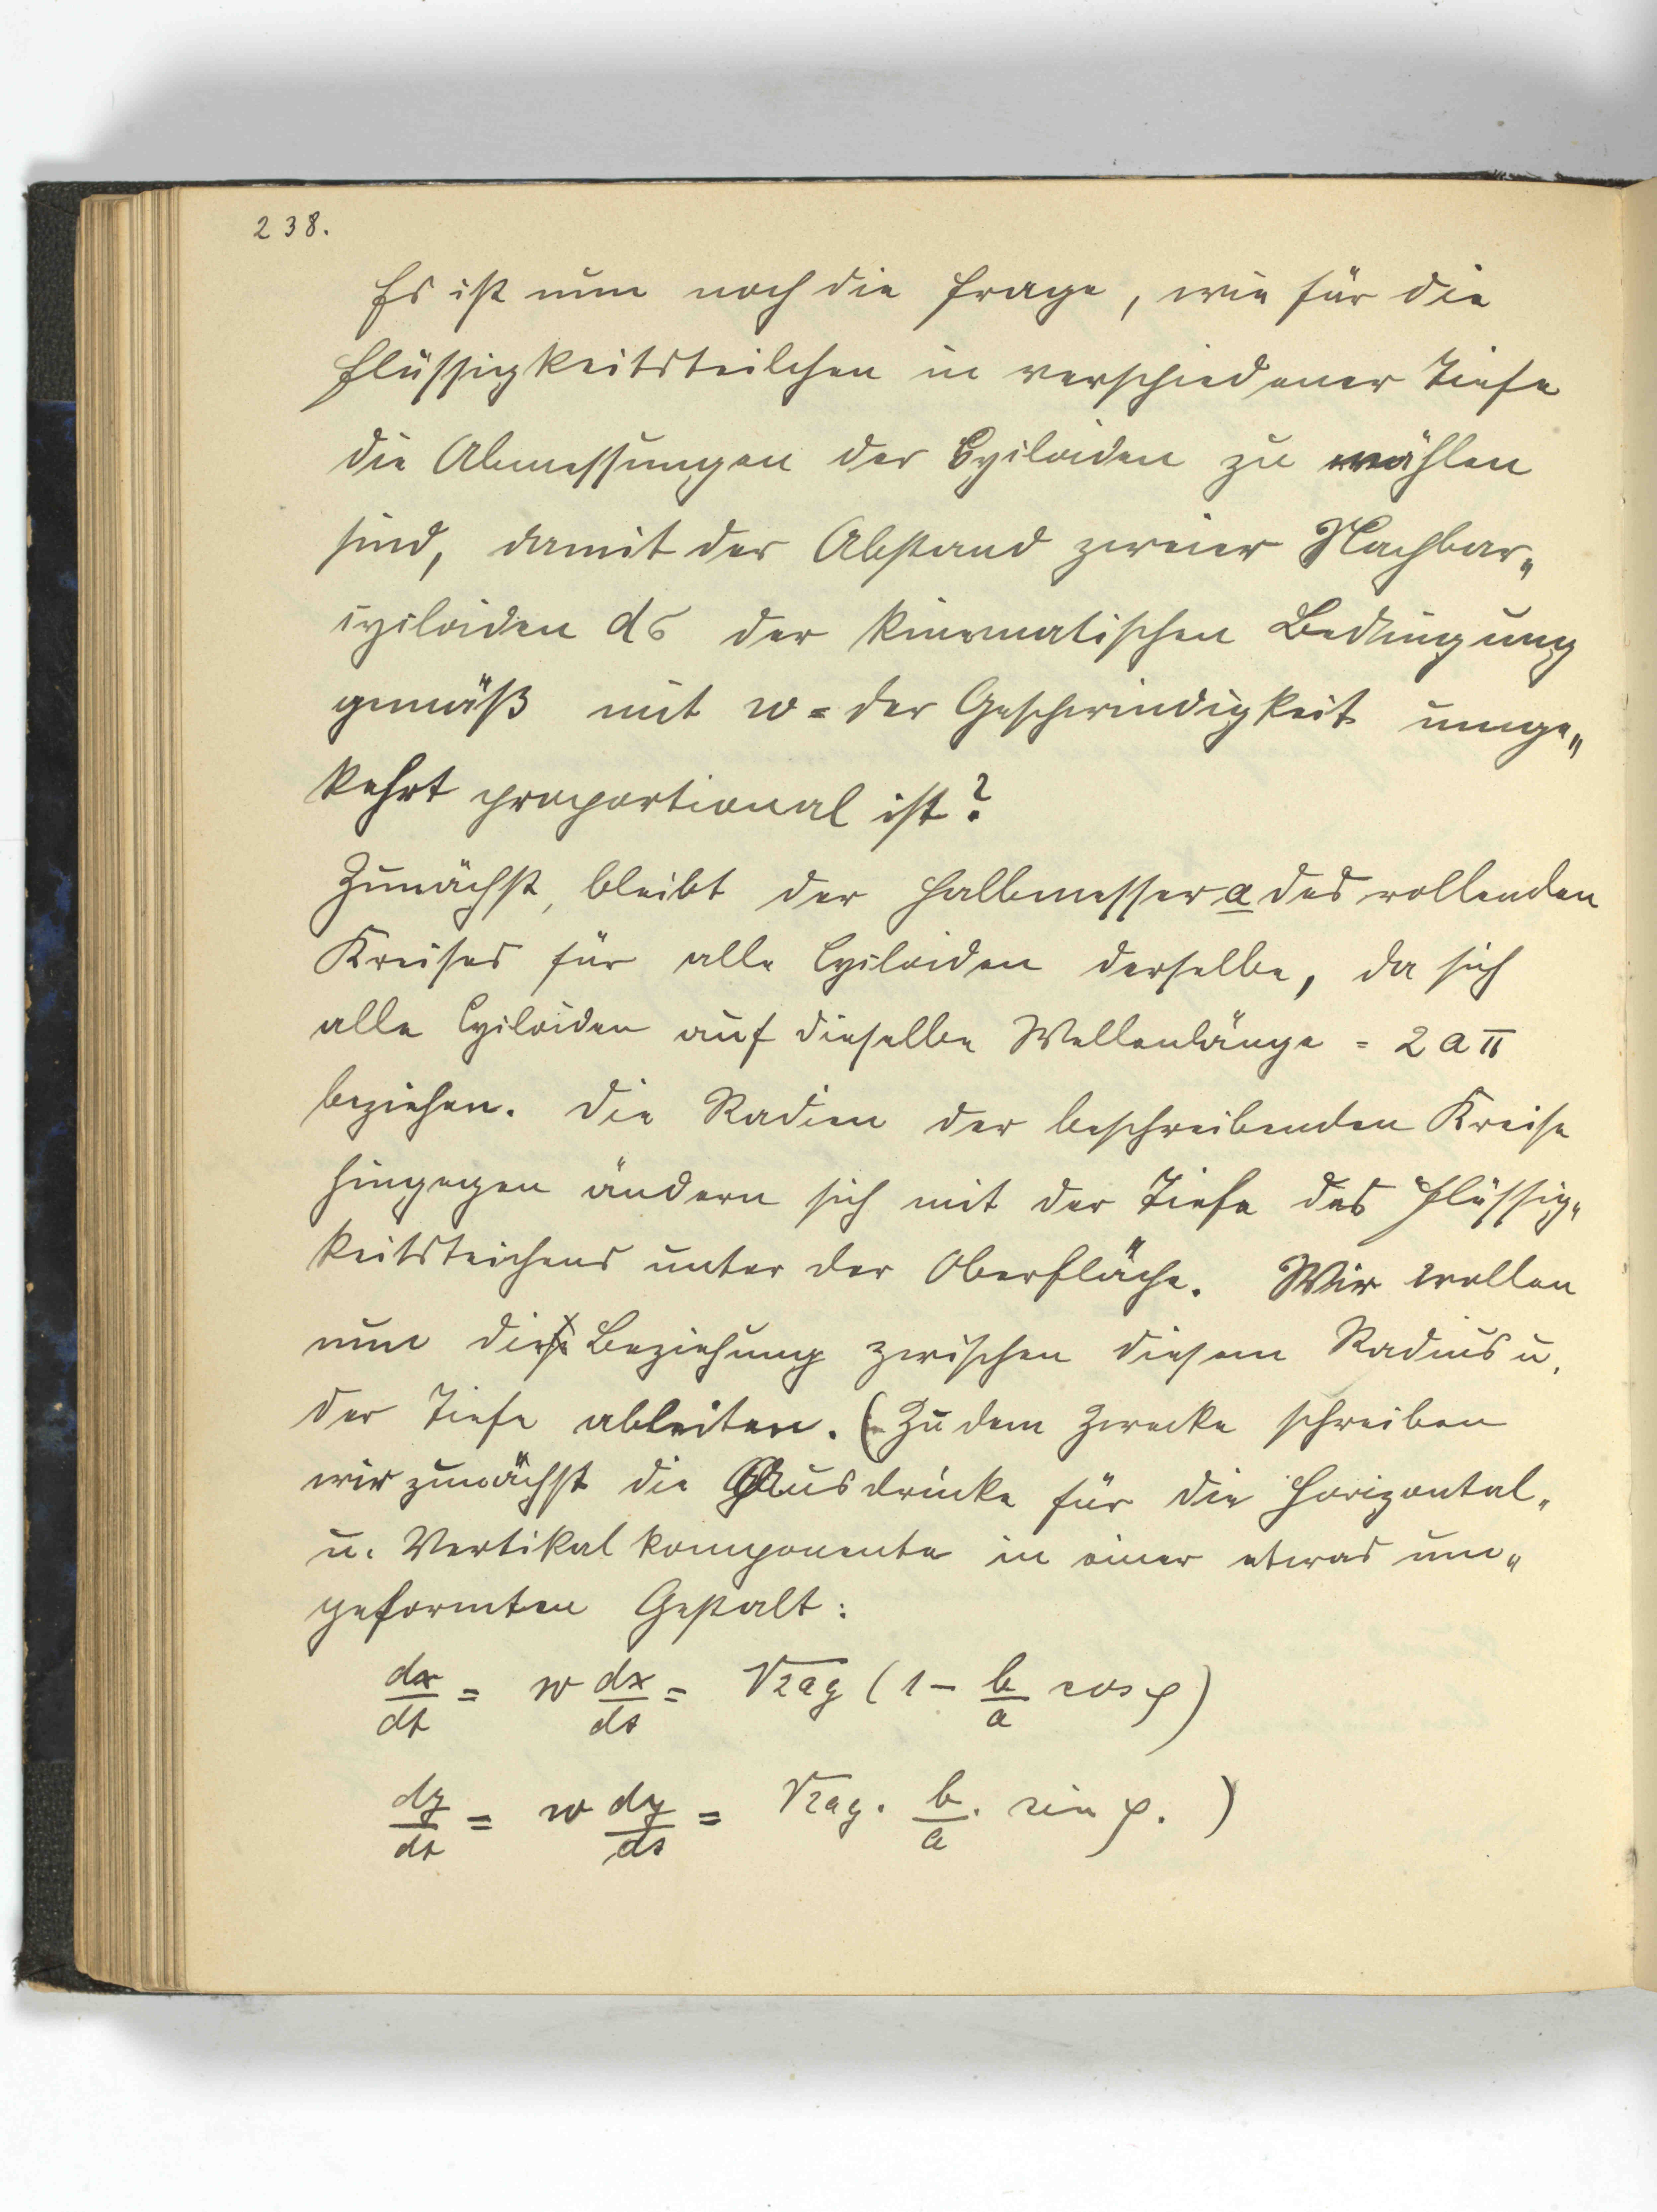 238.
Es ist nun noch die Frage, wie für die
Flüssigkeitsteilchen in verschiedener Tiefe
die Abmessungen der Cycloiden zu wählen
sind, damit der Abstand zweier Nachbar„
cycloiden dσ der kinematischen Bedingung
gemäß mit w = der Geschwindigkeit umge„
kehrt proportional ist?
Zunächst, bleibt der Halbmesser a des rollenden
Kreises für alle Cycloiden derselbe, da sich
alle Cycloiden auf dieselbe Wellenlänge = 2aπ
beziehen. Die Radien der beschreibenden Kreise
hingegen ändern sich mit der Tiefe des Flüssig„
keitsteichens unter der Oberfläche. Wir wollen
nun die Beziehung zwischen diesem Radius u.
der Tiefe ableiten. (Zu dem Zwecke schreiben
wir zunächst die Ausdrücke für die Horizontal„
u. Vertikalkomponente in einer etwas um„
geformten Gestalt:
dx/dt = w dx/ds = √2ag (1 - b/a cos φ)
dy/dt = w dy/ds = √2ag . b/a . sin φ. )